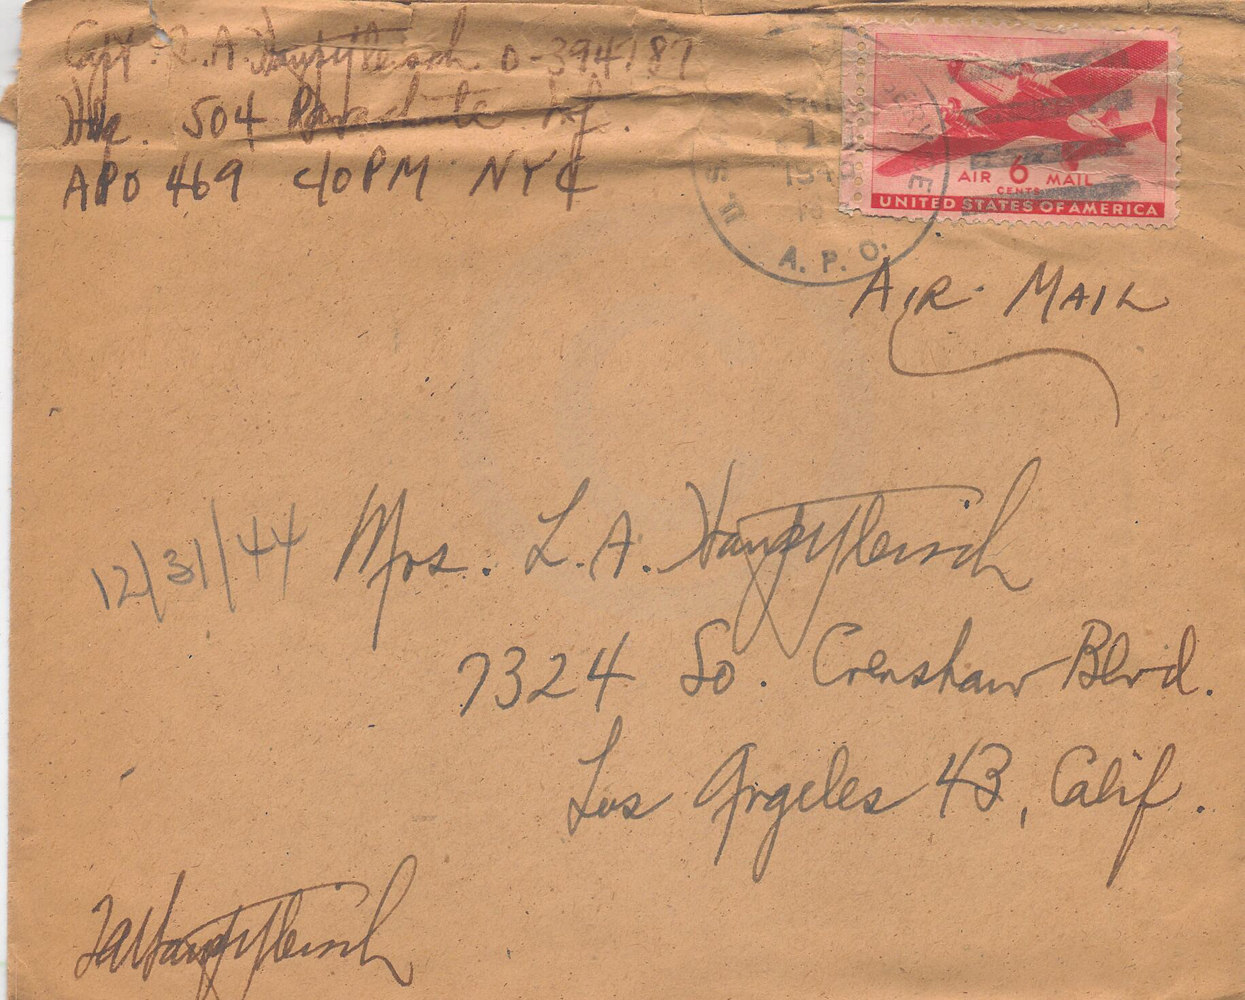 Capt. L.A. Hauptfleisch O-394187
Hdq. 504 Parachute Inf.
APO 469 c/o PM NYC
U.S. A. P. O.
1
194
AIR 6 MAIL
CENTS
UNITED STATES OF AMERICA
AIR MAIL
12/31/44 Mrs. L.A. Hauptfleisch
7324 So. Crenshaw Blvd.
Los Angeles 43, Calif.
LAHauptfleisch